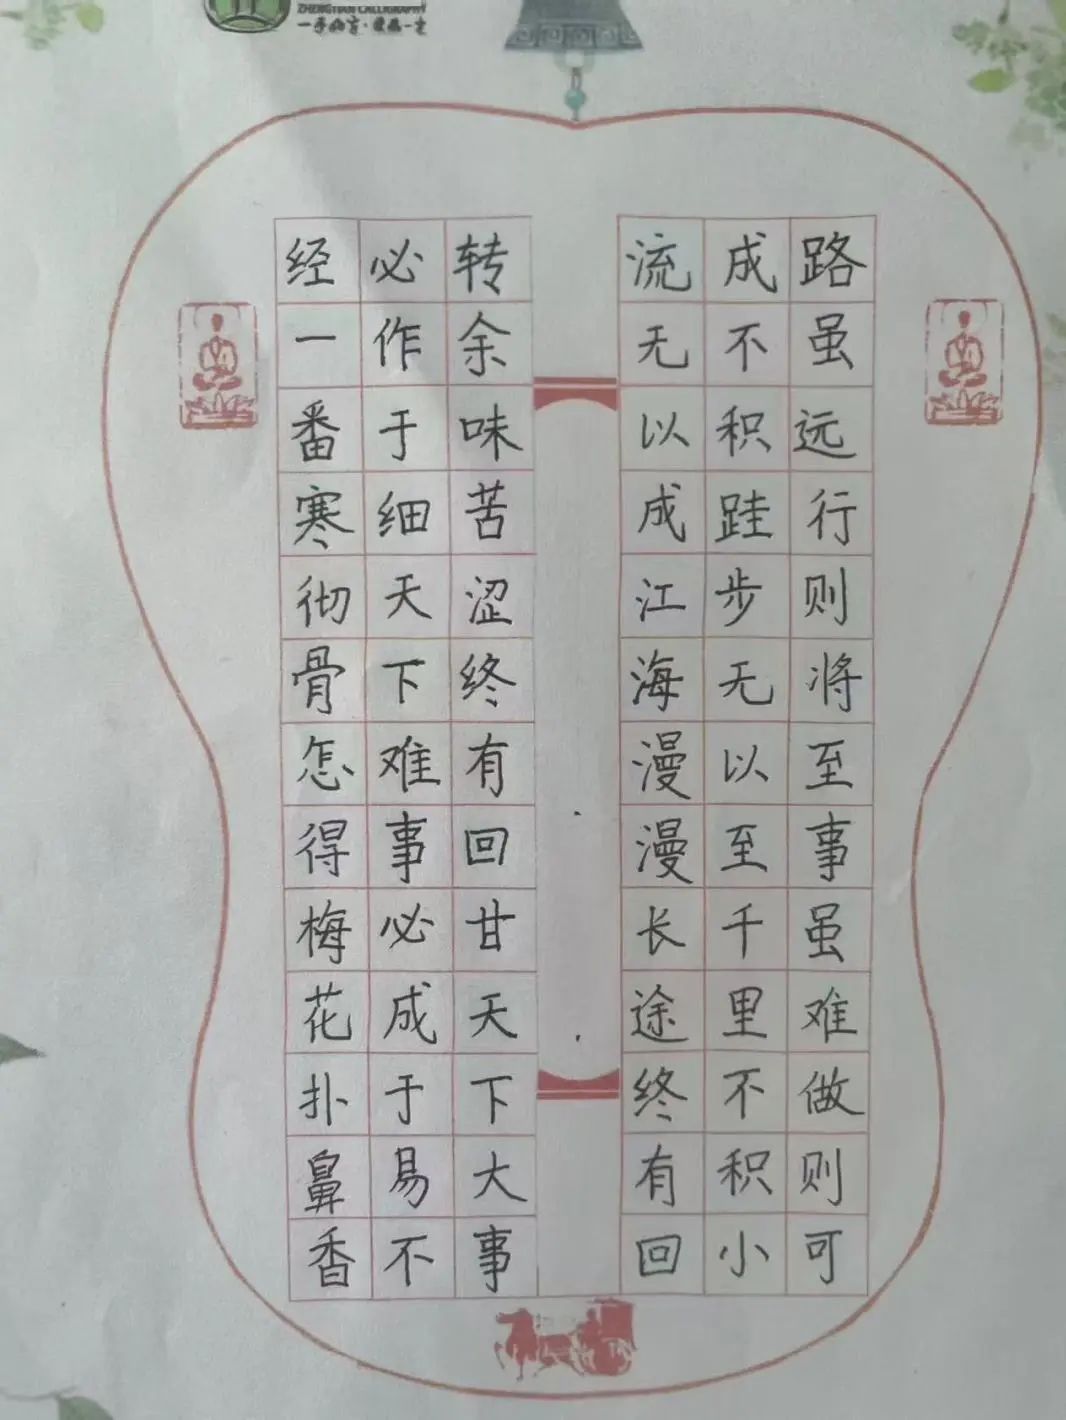 ZHENGTIAN CALLIGRAPHY
路虽远行则将至事虽难做则可
成不积跬步无以至千里不积小
流无以成江海漫漫长途终有回
转余味苦涩终有回甘天下大事
必作于细天下难事必成于易不
经一番寒彻骨怎得梅花扑鼻香